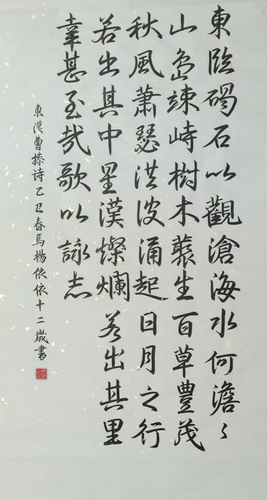 東臨碣石以觀滄海水何澹〻
山島竦峙樹木叢生百草豐茂
秋風蕭瑟洪波涌起日月之行
若出其中星漢燦爛若出其里
幸甚至哉歌以詠志
東漢曹操诗乙丑春馬楊依依十二歲書